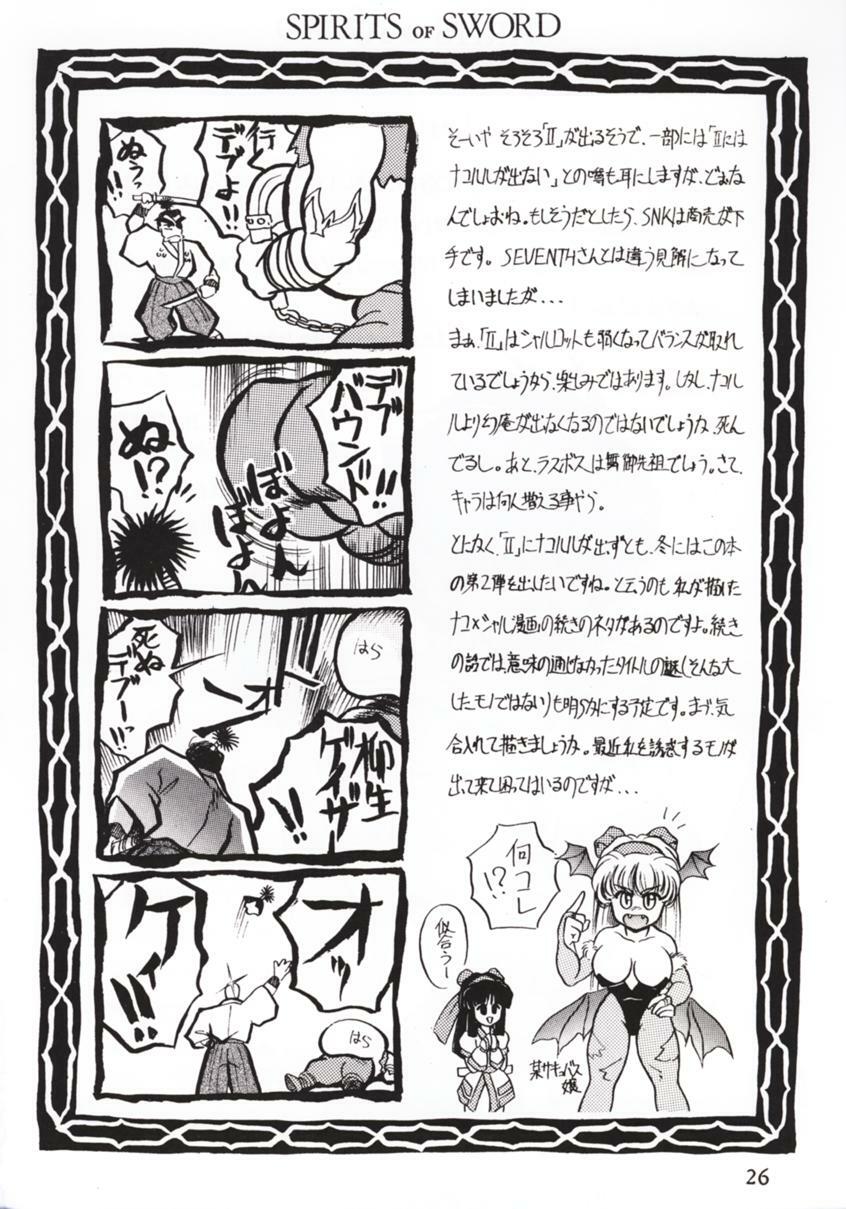 SPIRITS OF SWORD
行くデブよ
ぬうっ!!
デブバウンド!!
ぼよんぼよん
ぬ!?
はら
死ねデブー!!
柳生ゲイザー!!
オッ
ケイ!!
はら
そーいや そろそろ「II」が出るそうで、一部には「IIには
ナコルルが出ない」との噂も耳にしますが、どぉな
んでしょおね。もしそうだとしたら、SNKは商売が下
手です。SEVENTHさんとは違う見解になって
しまいましたが...
まぁ、「II」はシャルロットも弱くなってバランスが取れ
ているでしょうから、楽しみではあります。しかし、ナコル
ルより幻庵が出なくなるのではないでしょうか、死ん
でるし。あと、ラスボスは舞御先祖でしょう。さて、
キャラは何人増える事やら。
とにかく、「II」にナコルルが出ずとも、冬にはこの本
の第2弾を出したいですね。と云うのも私が描いた
ナコ×シャル漫画の続きのネタがあるのですよ。続き
の話では、意味の通じなかったタイトルの謎(そんな大
したモノではない)も明らかにする予定です。まぁ、気
合入れて描きましょうか。最近私を誘惑するモノが
出て来て困ってはいるのですが...
何コレ!?
似合うー
某サキュバス嬢
26